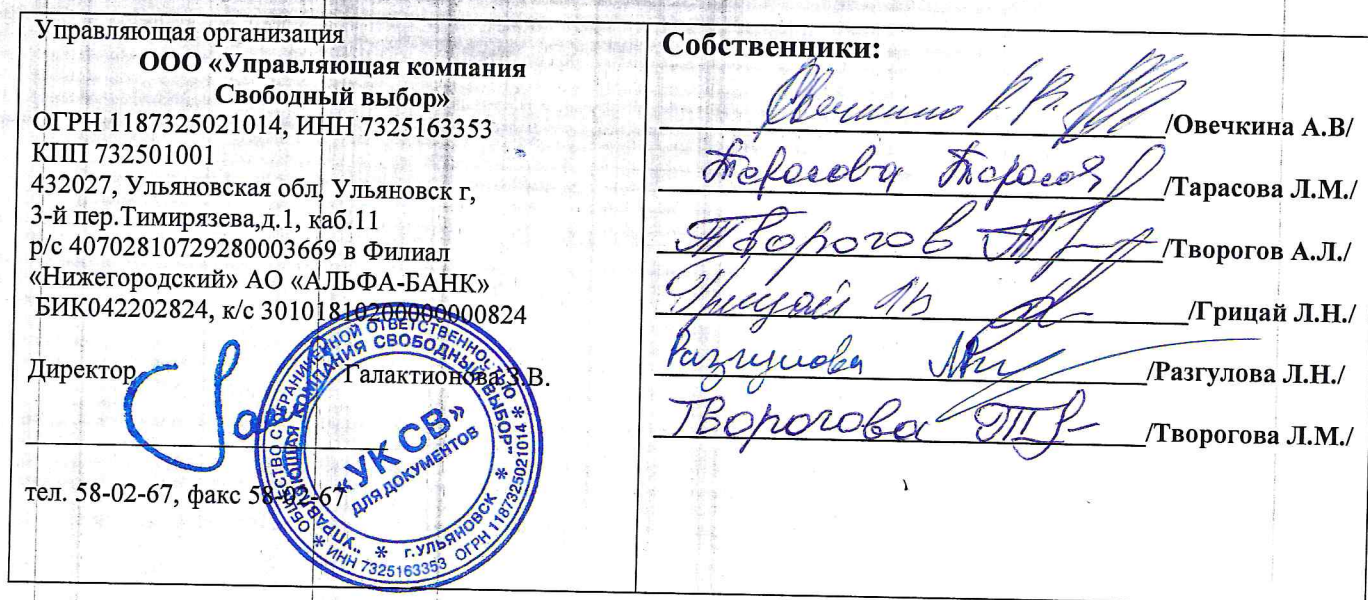 Управляющая организация
ООО «Управляющая компания
Свободный выбор»
ОГРН 1187325021014, ИНН 7325163353
КПП 732501001
432027, Ульяновская обл, Ульяновск г,
3-й пер.Тимирязева,д.1, каб.11
р/с 40702810729280003669 в Филиал
«Нижегородский» АО «АЛЬФА-БАНК»
БИК042202824, к/с 30101810200000000824
Директор Галактионова З.В.
тел. 58-02-67, факс 58-02-67
ОБЩЕСТВО С ОГРАНИЧЕННОЙ ОТВЕТСТВЕННОСТЬЮ
* ИНН 7325163353 ОГРН 1187325021014 *
"УПРАВЛЯЮЩАЯ КОМПАНИЯ СВОБОДНЫЙ ВЫБОР"
* г.УЛЬЯНОВСК *
«УК СВ»
ДЛЯ ДОКУМЕНТОВ
Собственники:
Овечкина А.В. /Овечкина А.В/
Тарасова /Тарасова Л.М./
Творогов /Творогов А.Л./
Грицай /Грицай Л.Н./
Разгулова /Разгулова Л.Н./
Творогова /Творогова Л.М./